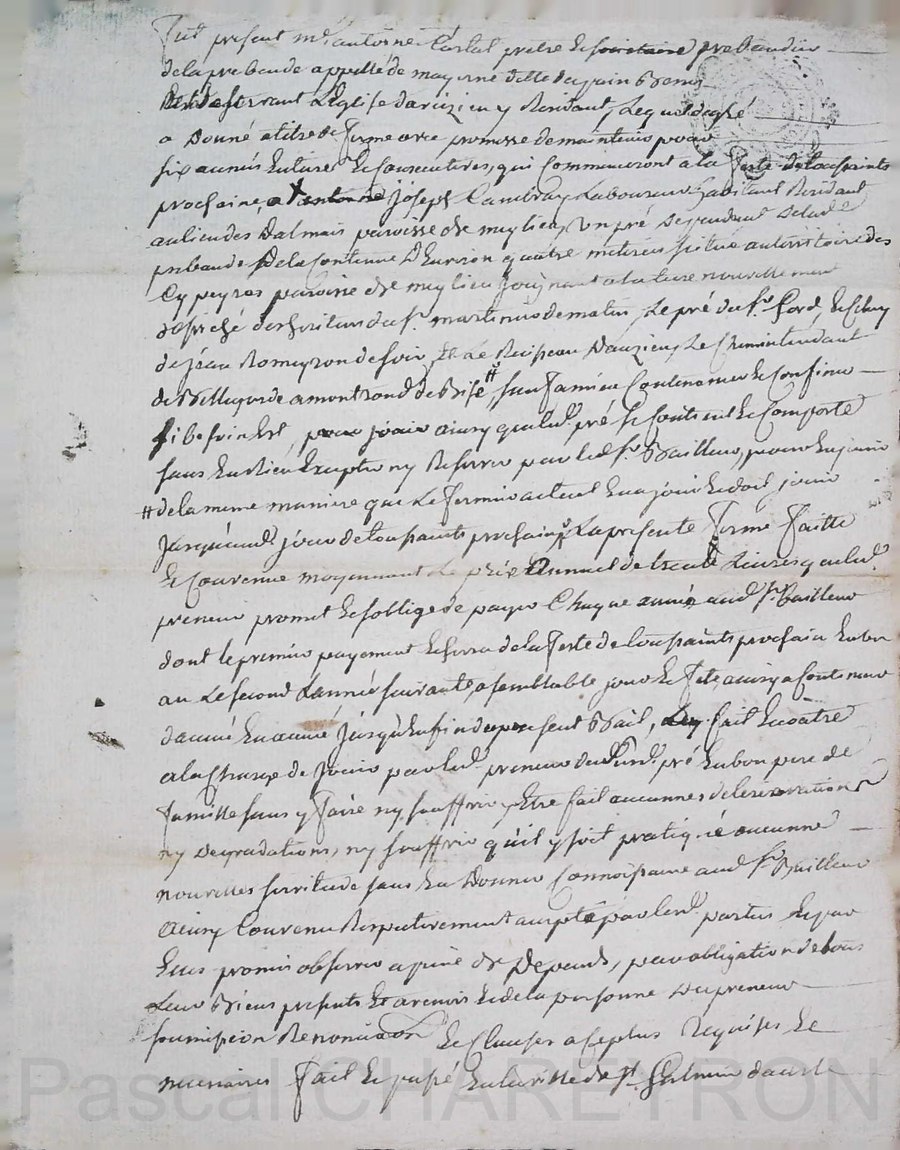 fut present mre antoine pretre et societaire prebandier
de la prebande appellé de mayerne ditte
desservant l'Eglise d'auzieu y Residant, lequel de gré
a Donné a titre de ferme avec promesse de maintenir pour
six années Entieres et consecutives, qui commenceront a la feste de toussaints
prochaine, a antoine joseph Cambray Laboureur habitant Residant
au lieu des Dalmais paroisse de meylieu, un pré dependant de lade
prebande De la contenue D'Environ quatre meterées situé au territoire des
Cypeyres paroisse de meylieu joignant a la terre nouvellement
defriché des heritiers du sr. de matin, Le pré du sr.
de jean Romeyron de soir, et Le Ruisseau Dauzieu, Le Chemin tendant
de Bellegarde a montrond de Bise # sauf a mieux Contenances et confins
si besoin Est, pour jouir ainsy que led. pré se contient et comporte
sans En Rien Excepter ny Reserver par led. sr. Bailleur, pour En jouir
# de la meme maniere que Le fermier actuel En a joui et doit jouir
jusqu'aud. jour de toussaints prochain. La presente ferme faitte
et Convenue moyennant Le prix Annuel de trente Livres que led.
preneur promet et s'oblige de payer Chaque année aud. sr. Bailleur
dont le premier payement Eschera de la feste de toussaints prochain En un
an Le second L'année suivante, a semblable jour et fete, ainsy a continuer
d'année En année jusqu'En fin du present Bail, fait En outre
a la Charge de jouir par led. preneur dud. pré En bon pere de
famille sans y faire ny souffrir Etre fait aucunnes deteriorations
ny Degradations, ny souffrir qu'il y soit pratiqué aucunne
nouvelles servitude sans En Donner Connoissance aud. sr. Bailleur
ainsy Convenu Respectivement accepté par lesd. parties Et par
Elles promis observer a peine de Depends, par obligation de tous
Leur Biens presents Et avenir Et de la personne Du preneur
soumission Renonciaon Et Clauses a ce plus Requises Et
necessaires fait Et passé En la ville de st. Galmier
Pascal CHAREYRON